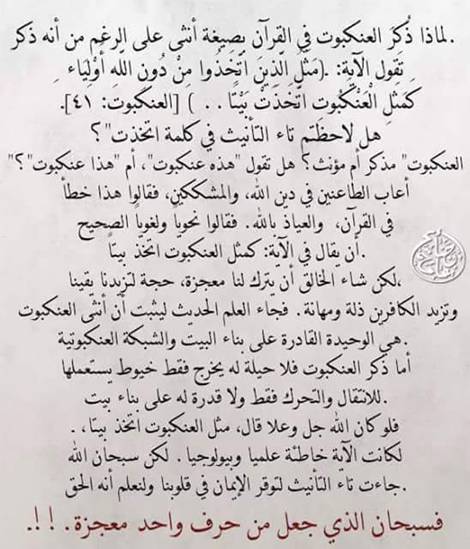 .لماذا ذُكرَ العنكبوت في القرآن بصيغة أنثى على الرغم من أنه ذكر
تَقول الآيَة: .(مَثَلُ الَّذِينَ اتَّخَذُوا مِنْ دُونِ اللَّهِ أَوْلِيَاءَ
كَمَثَلِ الْعَنْكَبُوت اتَّخَذَتْ بَيْتًا . . ) [العنكبوت: ٤١].
هل لاحظتم تاء التأنيث في كلمة اتخذت"؟
العنكبوت" مذكر أم مؤنث؟ هل تقول "هذه عنكبوت"، أم "هذا عنكبوت"؟"
أعاب الطاعنين في دين الله، والمشككين، فقالوا هذا خطأ
في القرآن، والعياذ بالله. فقالوا نحوياً ولغوياً الصحيح
.أن يقال في الآية: كمثل العنكبوت اتخذ بيتاً
،لكن شاء الخالق أن يترك لنا معجزة، حجة لتزيدنا يقينا
وتزيد الكافرين ذلة ومهانة . فجاء العلم الحديث ليثبت أن أنثى العنكبوت
.هي الوحيدة القادرة على بناء البيت والشبكة العنكبوتية
أما ذكر العنكبوت فلا حيلة له يخرج فقط خيوط يستعملها
.للانتقال والتحرك فقط ولا قدرة له على بناء بيت
فلو كان الله جل وعلا قال، مثل العنكبوت اتخذ بيتا، .
لكانت الآية خاطئة علميا وبيولوجيا . لكن سبحان الله
.جاءت تاء التأنيث لتوقر الإيمان في قلوبنا ولنعلم أنه الحق
فسبحان الذي جعل من حرف واحد معجزة. !!.